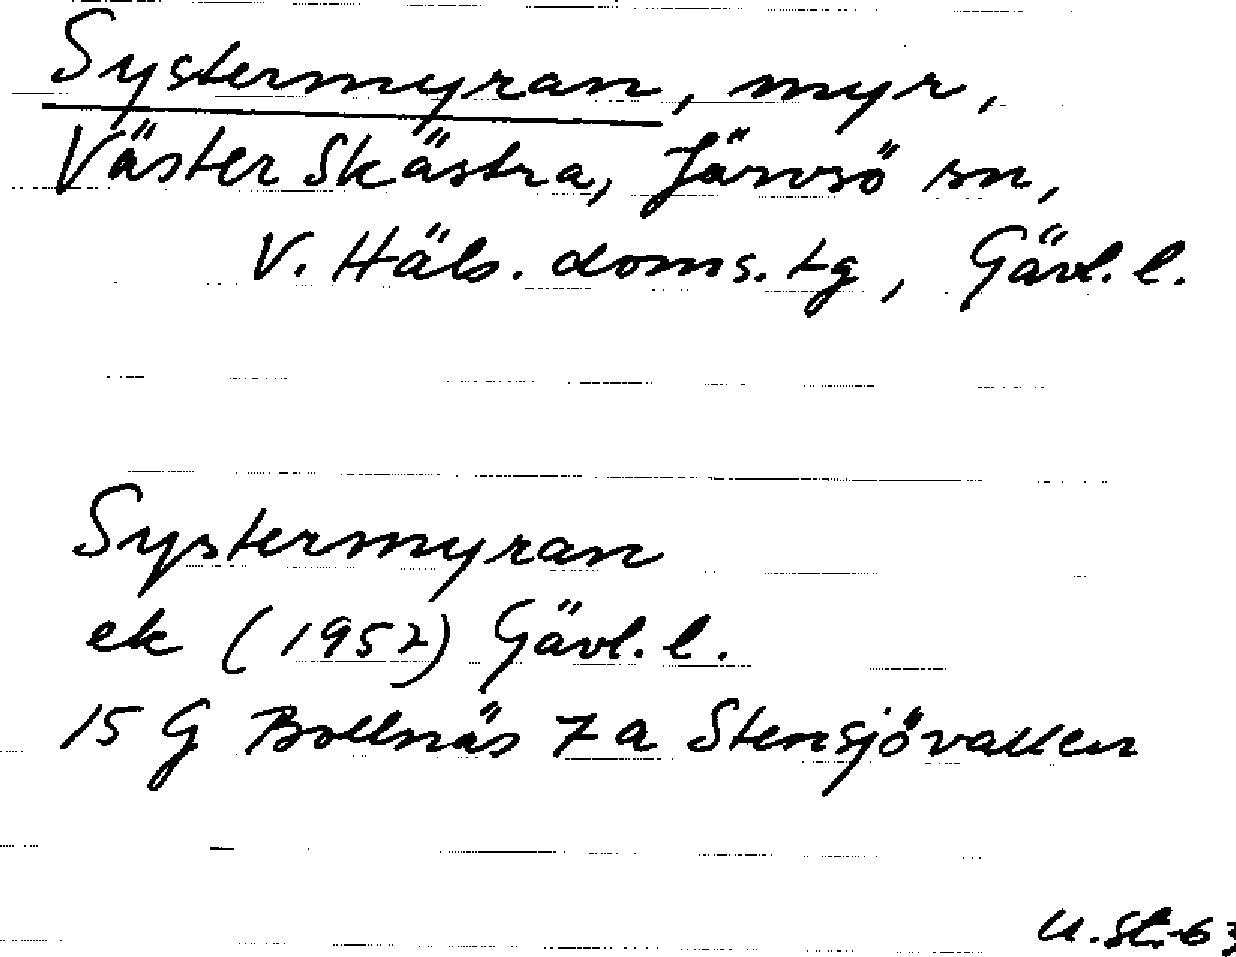 Systermyran, myr,
Väster Skästra, Järvsö sn,
V. Häls. doms. tg, Gävl. l.
Systermyran
ek (1952) Gävl. l.
15 G Bollnäs 7 a Stensjövallen
U. St. -63